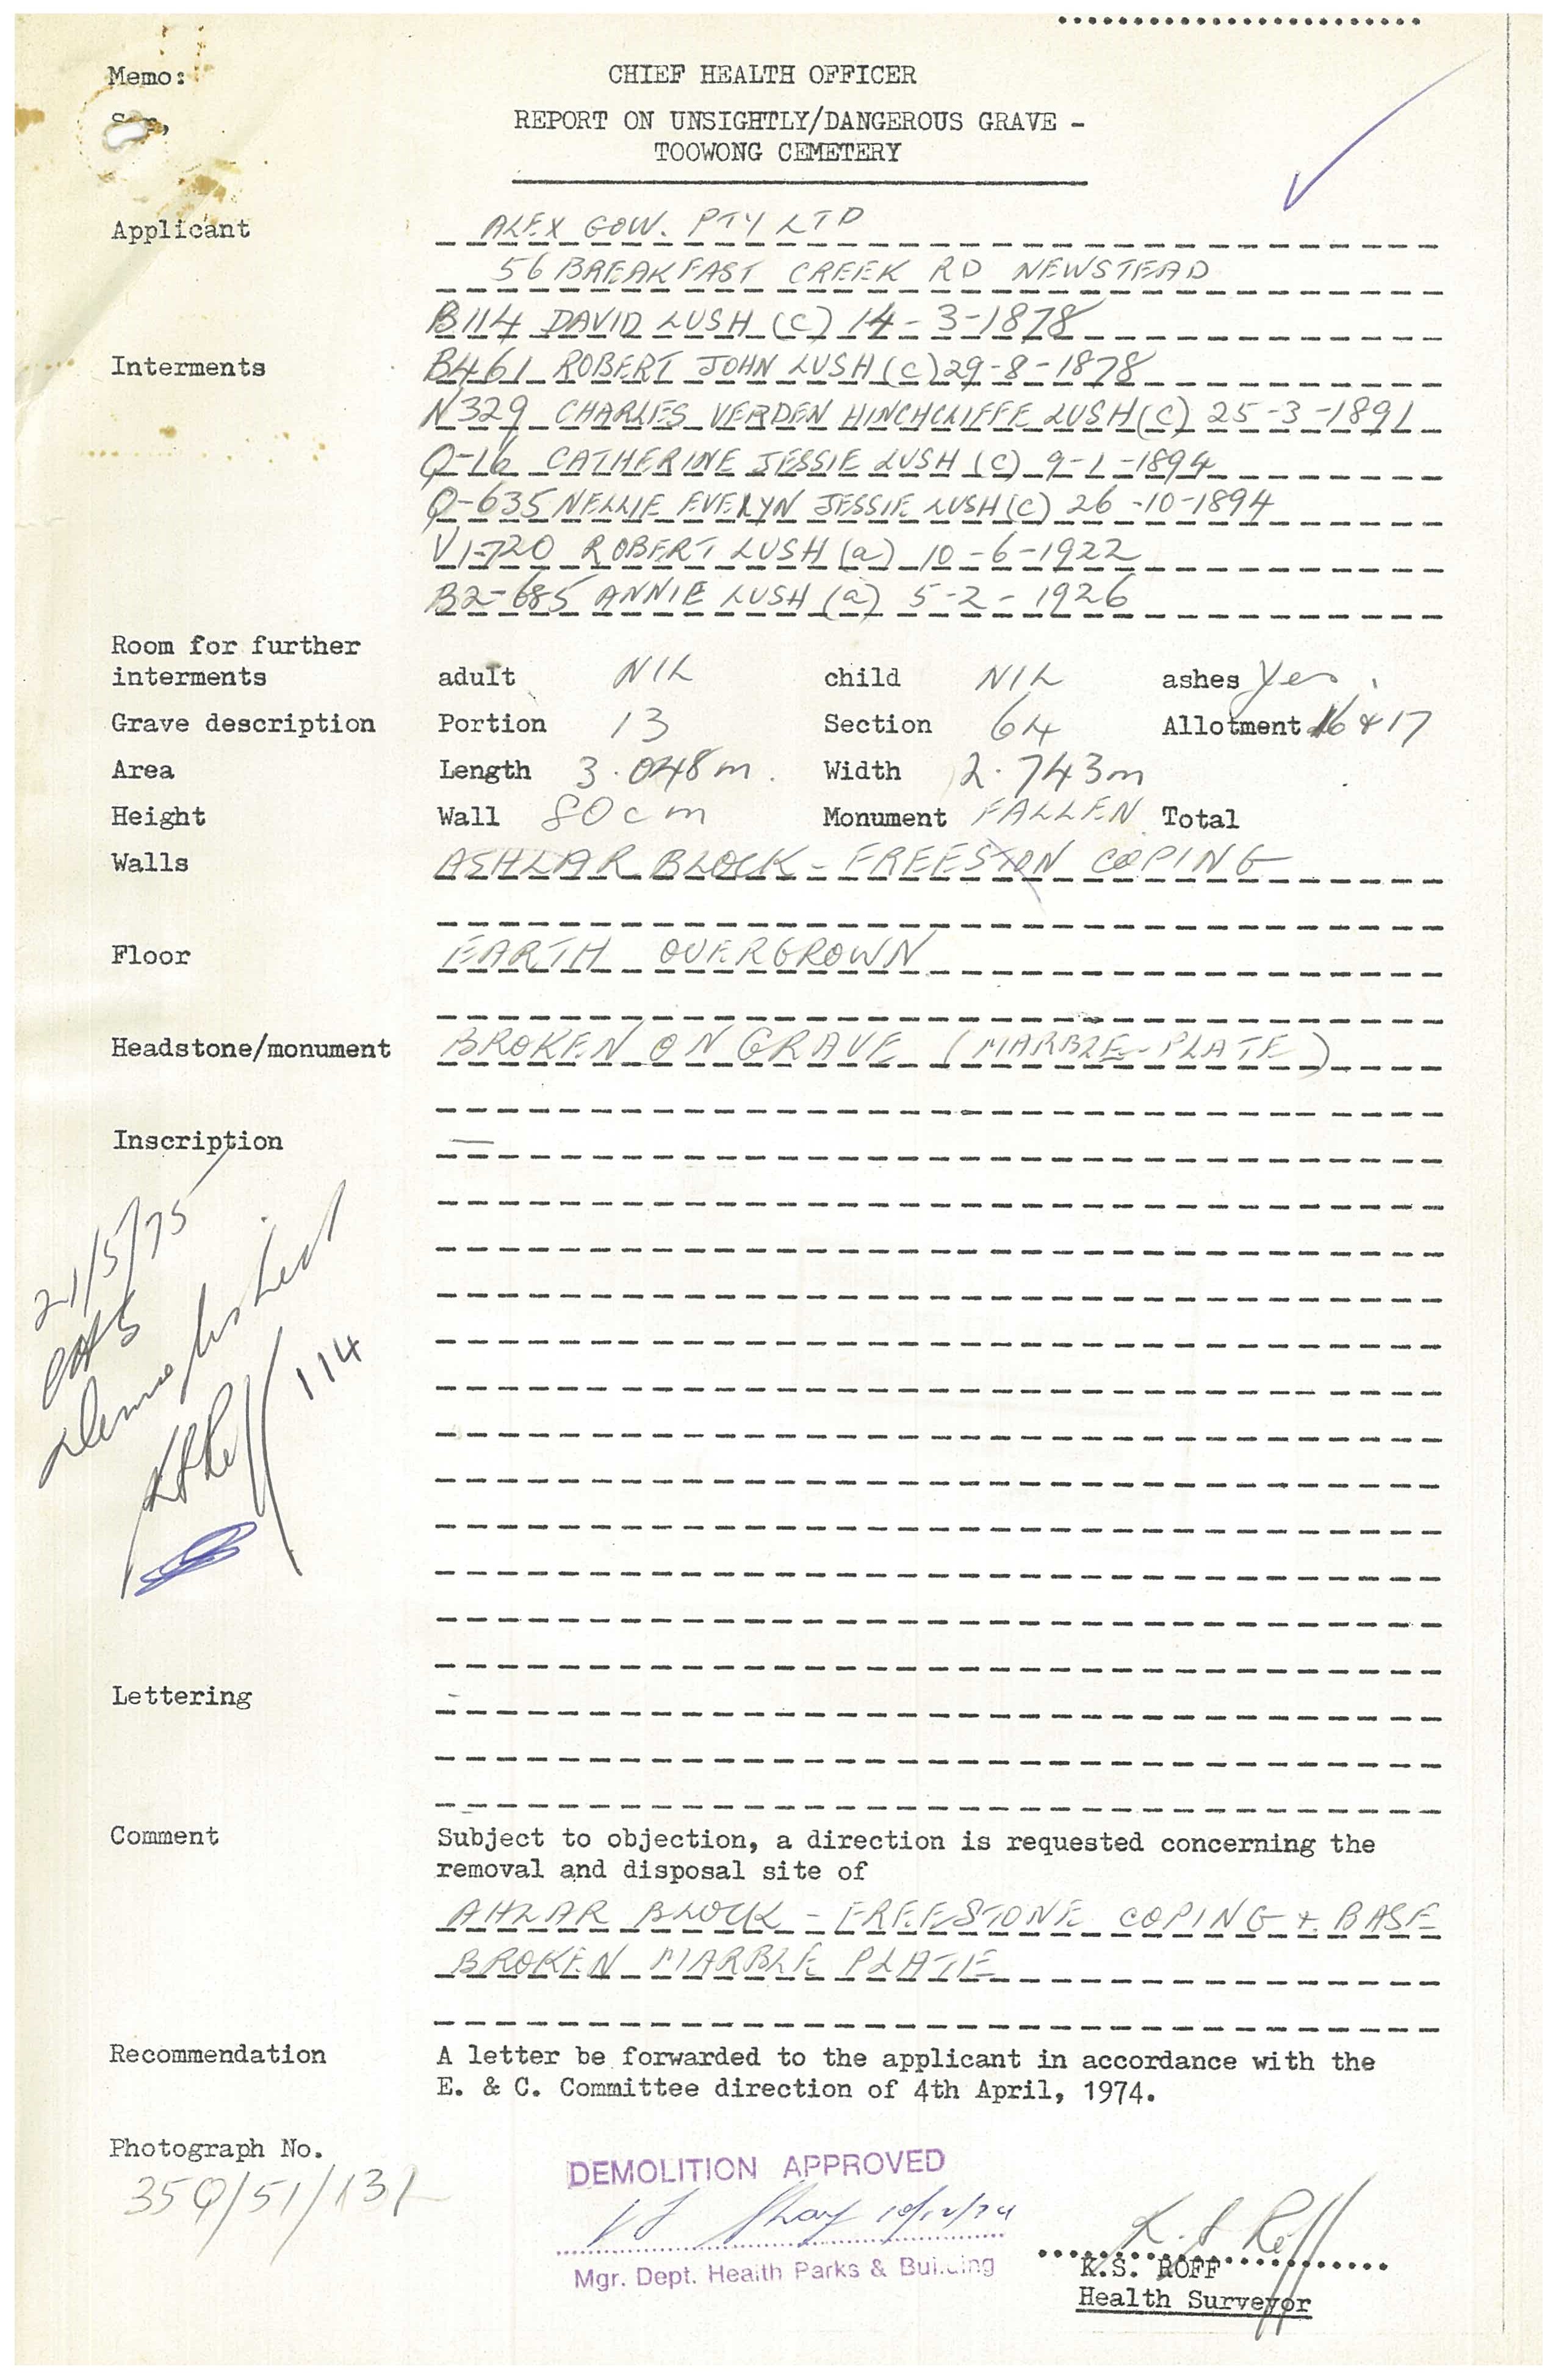 Memo: CHIEF HEALTH OFFICER
REPORT ON UNSIGHTLY/DANGEROUS GRAVE -
TOOWONG CEMETERY
Applicant ALEX GOW. PTY LTD
56 BREAKFAST CREEK RD NEWSTEAD
B114 DAVID LUSH (C) 14-3-1878
Interments B461 ROBERT JOHN LUSH (C) 29-8-1878
N329 CHARLES VERDEN HINCHCLIFFE LUSH (C) 25-3-1891
Q-16 CATHERINE JESSIE LUSH (C) 9-1-1894
Q-635 NELLIE EVELYN JESSIE LUSH (C) 26-10-1894
V1-720 ROBERT LUSH (a) 10-6-1922
B2-685 ANNIE LUSH (a) 5-2-1926
Room for further
interments adult NIL child NIL ashes Yes.
Grave description Portion 13 Section 64 Allotment 16 & 17
Area Length 3.048m. Width 2.743m
Height Wall 80cm Monument FALLEN Total
Walls ASHLAR BLOCK - FREESTON COPING
Floor EARTH OVERGROWN
Headstone/monument BROKEN ON GRAVE (MARBLE-PLATE)
Inscription —
21/5/75
Demolished
114
Lettering -
Comment Subject to objection, a direction is requested concerning the
removal and disposal site of
AHLAR BLOCK - FREESTONE COPING & BASE
BROKEN MARBLE PLATE
Recommendation A letter be forwarded to the applicant in accordance with the
E. & C. Committee direction of 4th April, 1974.
Photograph No.
35Q/51/131
DEMOLITION APPROVED
10/12/74
Mgr. Dept. Health Parks & Building
K. S. Roff
K.S. ROFF
Health Surveyor